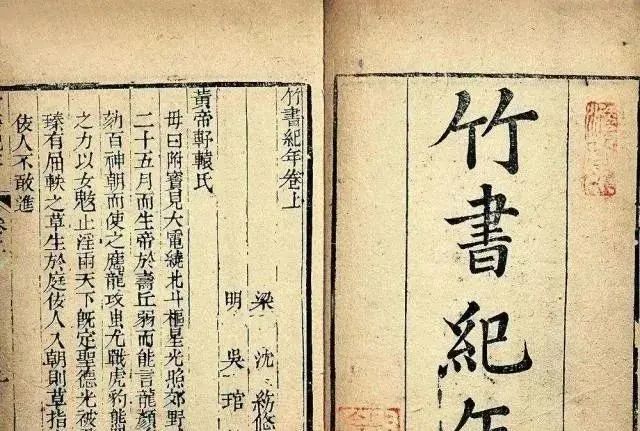 竹書紀年
竹書紀年卷上
梁 沈約
明 吳琯
黃帝軒轅氏
母曰附寶見大電繞北斗樞星光照郊野
二十五月而生帝於壽丘弱而能言龍顏
劾百神朝而使之應龍攻蚩尤戰虎豹熊
之力以女魃止淫雨天下旣定聖德光被
臻有屈軼之草生於庭佞人入朝則草指
佞人不敢進